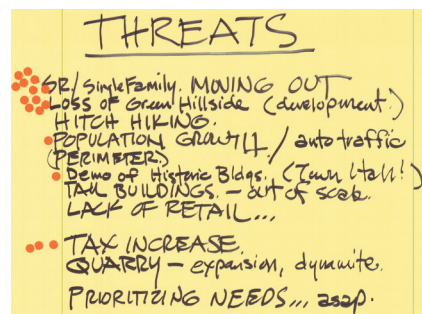 THREATS
SR./Single Family. MOVING OUT
Loss of Green Hillside (development.)
HITCH HIKING.
POPULATION GROWTH / auto traffic
(PERIMETER)
Demo of Historic Bldgs. (Town Hall!)
TALL BUILDINGS. — out of scale.
LACK OF RETAIL...
TAX INCREASE.
QUARRY — expansion, dynamite.
PRIORITIZING NEEDS... asap.